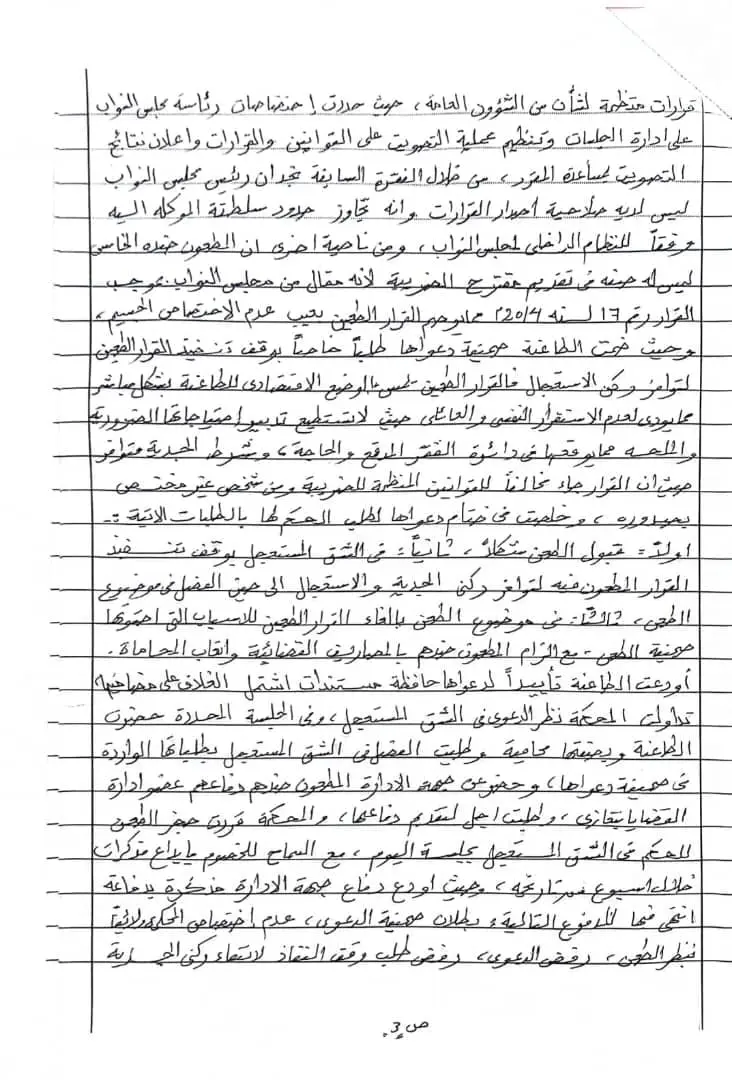 قرارات منظمة لشأن من الشؤون العامة ، حيث حددت إختصاصات رئاسة مجلس النواب
على ادارة الجلسات وتنظيم عملية التصويت على القوانين والقرارات واعلان نتائج
التصويت بمساعدة المقرر ، من خلال الفقرة السابقة نجد ان رئيس مجلس النواب
ليس لديه صلاحية اصدار القرارات وانه تجاوز حدود سلطته الموكله اليه
وفقاً للنظام الداخلى لمجلس النواب ، ومن ناحية اخرى ان المطعون ضده الخامس
ليس له صفه فى تقديم مقترح الضريبة لأنه مقال من مجلس النواب بموجب
القرار رقم 17 لسنه 2014م مما يوصم القرار الطعين بعيب عدم الاختصاص الجسيم ،
وحيث ضمت الطاعنة صحيفة دعواها طلباً خاصاً بوقف تنفيذ القرار الطعين
لتوافر ركن الاستعجال فالقرار الطعين يمس بالوضع الاقتصادى للطاعنة بشكل مباشر
مما يودى لعدم الاستقرار النفسى والعائلى حيث لاتستطيع تدبير إحتياجاتها الضرورية
والملحه مما يوقعها فى دائرة الفقر المدقع والحاجة ، وشرط الجدية متوافر
حيث ان القرار جاء مخالفاً للقوانين المنظمة للضريبة ومن شخص غير مختص
بصدوره ، وخلصت فى ختام دعواها لطلب الحكم لها بالطلبات الاتية :-
اولاً :- قبول الطعن شكلاً ، ثانياً :- فى الشق المستعجل بوقف تنفيذ
القرار المطعون فيه لتوافر ركنى الجدية والاستعجال الى حين الفصل فى موضوع
الطعن ، ثالثاً :- فى موضوع الطعن بالغاء القرار الطعين للاسباب التى احتوتها
صحيفة الطعن - مع الزام المطعون ضدهم بالمصاريف القضائية واتعاب المحاماة .
أودعت الطاعنة تأييداً لدعواها حافظة مستندات اشتمل الغلاف على مضامينها
تداولت المحكمة نظر الدعوى فى الشق المستعجل ، وفى الجلسة المحددة حضرت
الطاعنة وبصفتها محامية وطلبت الفصل فى الشق المستعجل بطلباتها الواردة
فى صحيفة دعواها ، وحضر عن جهة الادارة المطعون ضدهم دفاعهم عضو ادارة
القضايا بنغازى ، وطلبت اجل لتقديم دفاعها ، والمحكمة قررت حجز الطعن
للحكم فى الشق المستعجل بجلسة اليوم ، مع السماح للخصوم بايداع مذكرات
خلال اسبوع من تاريخه ، وحيث اودع دفاع جهة الادارة مذكرة بدفاعه
انتهى فيها للدفوع التالية : بطلان صحيفة الدعوى ، عدم إختصاص المحكمة ولائياً
بنظر الطعن ، رفض الدعوى ، رفض طلب وقف النفاذ لانتفاء ركنى الجدية
ص 3